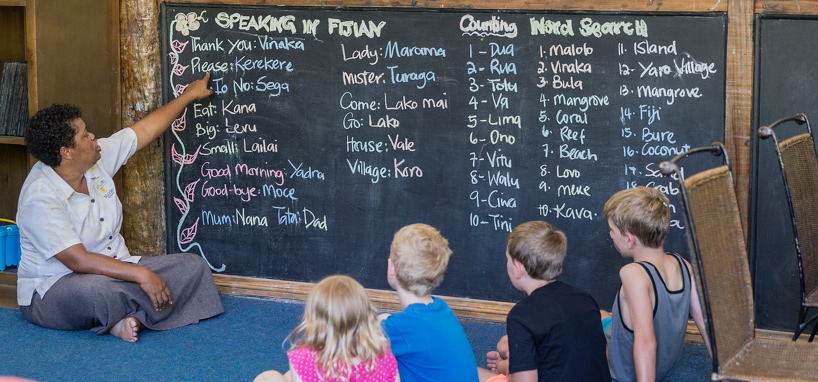 SPEAKING IN FIJIAN
Thank you: Vinaka
Please: Kerekere
Io No: Sega
Eat: Kana
Big: Levu
Small: Lailai
Good Morning: Yadra
Good-bye: Moce
Mum: Nana Tata: Dad
Lady: Marama
Mister: Turaga
Come: Lako mai
Go: Lako
House: Vale
Village: Koro
Counting
1 - Dua
2 - Rua
3 - Tolu
4 - Va
5 - Lima
6 - Ono
7 - Vitu
8 - Walu
9 - Ciwa
10 - Tini
Word Search
1. malolo
2. Vinaka
3. Bula
4. Mangrove
5. Coral
6. Reef
7. Beach
8. Lovo
9. meke
10. Kava
11. Island
12. Yaro Village
13. mangrove
14. Fiji
15. Bure
16. Coconut
17. Socks
18.